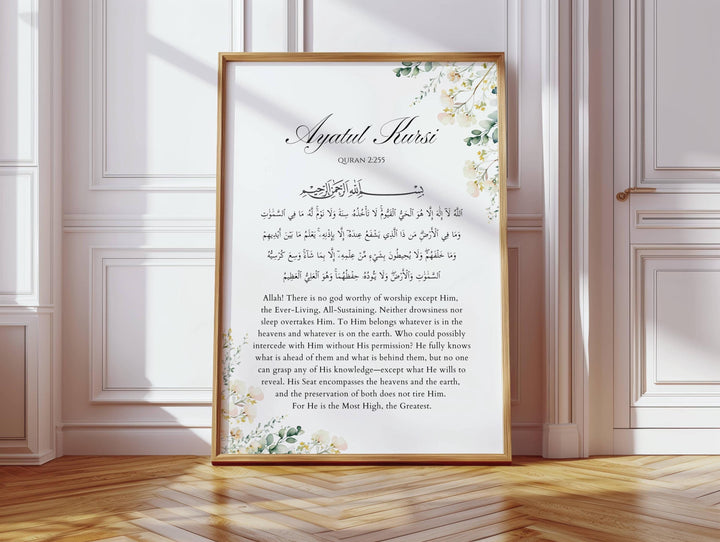 Ayatul Kursi
QURAN 2:255
بِسْمِ اللهِ الرَّحْمٰنِ الرَّحِيْمِ
اَللَّهُ لَآ إِلَٰهَ إِلَّا هُوَ ٱلْحَىُّ ٱلْقَيُّومُ لَا تَأْخُذُهُۥ سِنَةٌ وَلَا نَوْمٌ لَّهُۥ مَا فِي ٱلسَّمَٰوَٰتِ
وَمَا فِي ٱلْأَرْضِ مَن ذَا ٱلَّذِي يَشْفَعُ عِندَهُۥٓ إِلَّا بِإِذْنِهِۦ يَعْلَمُ مَا بَيْنَ أَيْدِيهِمْ
وَمَا خَلْفَهُمْ وَلَا يُحِيطُونَ بِشَيْءٍ مِّنْ عِلْمِهِۦٓ إِلَّا بِمَا شَآءَ وَسِعَ كُرْسِيُّهُ
ٱلسَّمَٰوَٰتِ وَٱلْأَرْضَ وَلَا يَـُٔودُهُۥ حِفْظُهُمَا وَهُوَ ٱلْعَلِيُّ ٱلْعَظِيمُ
Allah! There is no god worthy of worship except Him,
the Ever-Living, All-Sustaining. Neither drowsiness nor
sleep overtakes Him. To Him belongs whatever is in the
heavens and whatever is on the earth. Who could possibly
intercede with Him without His permission? He fully knows
what is ahead of them and what is behind them, but no one
can grasp any of His knowledge—except what He wills to
reveal. His Seat encompasses the heavens and the earth,
and the preservation of both does not tire Him.
For He is the Most High, the Greatest.